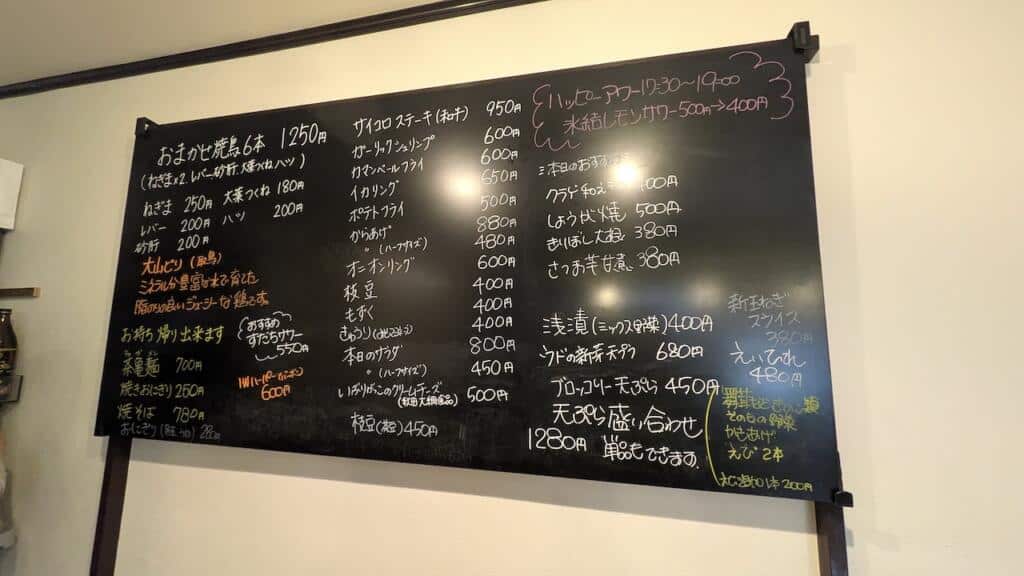 おまかせ焼鳥6本 1250円
(ねぎま×2 レバー 砂肝 大葉つくね ハツ)
ねぎま 250円 大葉つくね 180円
レバー 200円 ハツ 200円
砂肝 200円
大山どり
ミネラル豊富な水で育てた
お持ち帰り出来ます
茶蕎麺 700円
焼きおにぎり 250円
焼そば 780円
おにぎり
おすすめ
すだちサワー
550円
600円
サイコロステーキ(和牛) 950円
ガーリックシュリンプ 600円
カマンベールフライ 600円
イカリング 650円
ポテトフライ 500円
からあげ 880円
〃 (ハーフサイズ) 480円
オニオンリング 600円
枝豆 400円
もずく 400円
きゅうり 400円
本日のサラダ 800円
〃 (ハーフサイズ) 450円
いぶりがっこのクリームチーズ 500円
枝豆 450円
ハッピーアワー17:30〜19:00
氷結レモンサワー 500円→400円
本日のおすすめ
クラゲ和え 00円
しょうが焼 500円
きりぼし大根 380円
さつま芋甘煮 380円
浅漬(ミックス野菜) 400円
ウドの新芽天プラ 680円
ブロッコリー天ぷら 450円
天ぷら盛り合わせ
1280円 単品もできます
新玉ねぎ
スライス
380円
えいひれ
480円
その他の野菜
かきあげ
えび 2本
1本 200円